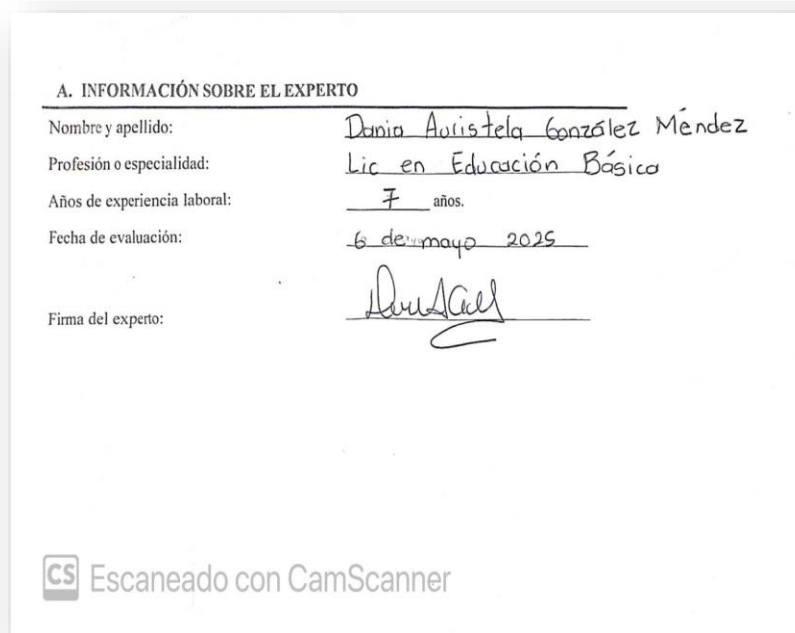 A. INFORMACIÓN SOBRE EL EXPERTO
Nombre y apellido: Dania Auristela González Méndez
Profesión o especialidad: Lic en Educación Básica
Años de experiencia laboral: 7 años.
Fecha de evaluación: 6 de mayo 2025
Firma del experto:
CS Escaneado con CamScanner